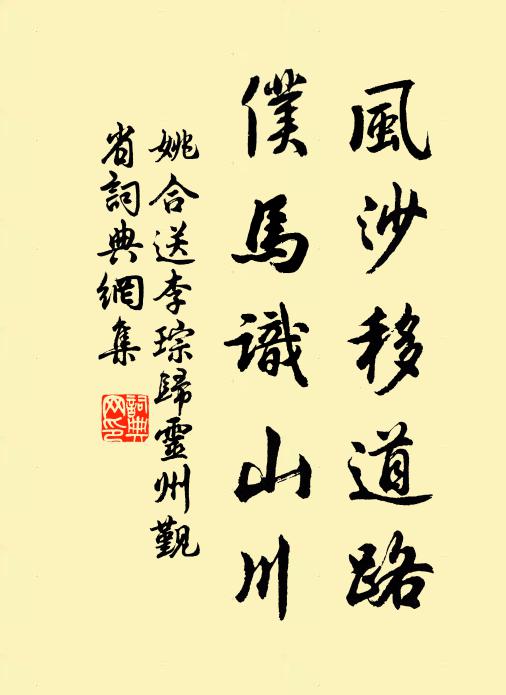 風沙移道路
僕馬識山川
姚合送李琮歸靈州觐
省詞典網集
詞典网印